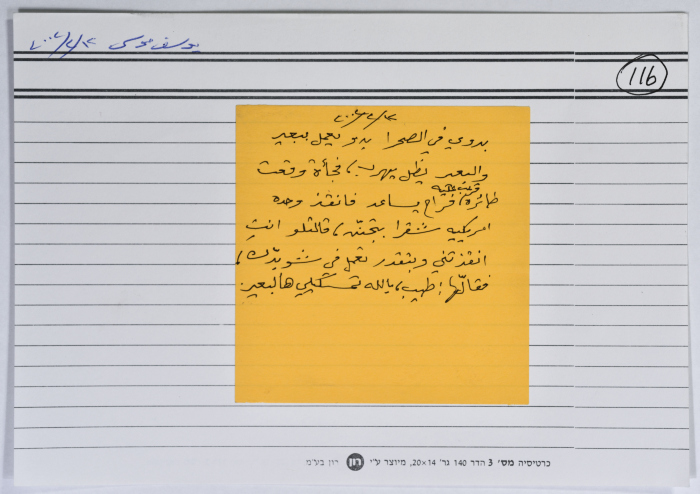 يوسف موسى ٢٠٠٢/٢/١٢
116
٢٠٠٢/٢/١٢
بدوي في الصحرا بدو يعمل ببعير
والبعير يظل يهرب، فجأة وقعت
قريب عليه
طائرة، فراح يساعد فانقذ وحده
امريكيه شقرا بتجنّن، قالتلو انتِ
انقذتني وبتقدر تعمل في شو بدّك،
فقالّها: طيب، يالله تمسكيلي هالبعير.
כרטיסיה מס' 3 הדר 140 גר' 20×14, מיוצר ע"י רון רון בע"מ